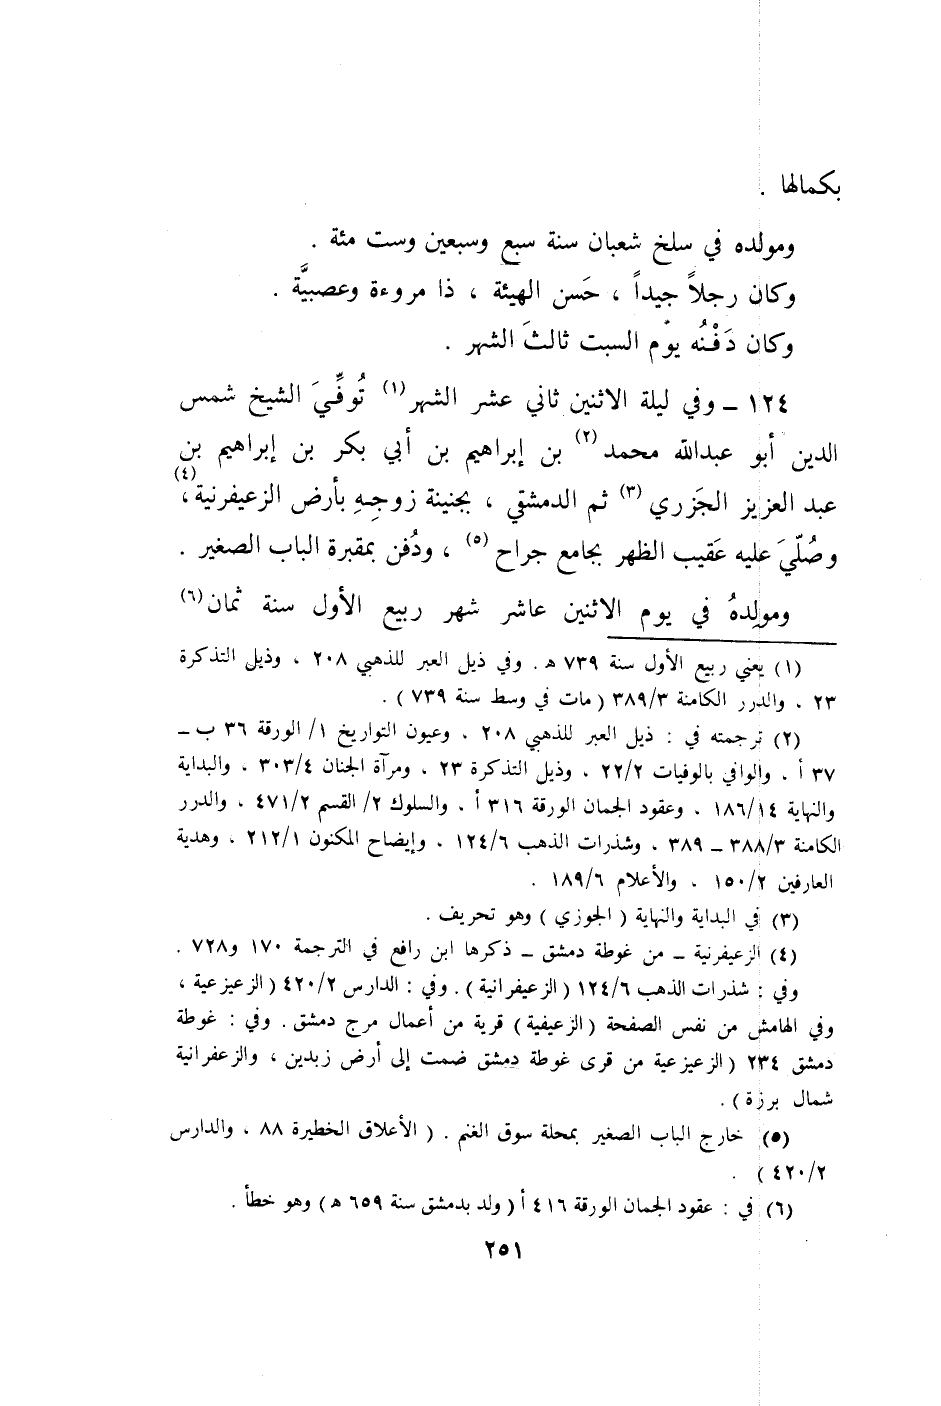 بكمالها .
ومولده في سلخ شعبان سنة سبع وسبعين وست مئة .
وكان رجلاً جيداً ، حَسن الهيئة ، ذا مروءة وعصبيَّة .
وكان دَفْنُه يوْم السبت ثالثَ الشهر .
١٢٤ ـ وفي ليلة الاثنين ثاني عشر الشهر(١) تُوفِّيَ الشيخ شمس
الدين أبو عبدالله محمد(٢) بن إبراهيم بن أبي بكر بن إبراهيم بن
عبد العزيز الجَزري(٣) ثم الدمشقي ، بجنينة زوجِهِ بأرض الزعيفرنية(٤)،
وصُلّيَ عليه عَقيب الظهر بجامع جراح(٥) ، ودُفن بمقبرة الباب الصغير .
ومولِدهُ في يوم الاثنين عاشر شهر ربيع الأول سنة ثمان(٦)
(١) يعني ربيع الأول سنة ٧٣٩ هـ . وفي ذيل العبر للذهبي ٢٠٨ ، وذيل التذكرة
٢٣ ، والدرر الكامنة ٣/٣٨٩ ( مات في وسط سنة ٧٣٩ ) .
(٢) ترجمته في : ذيل العبر للذهبي ٢٠٨ ، وعيون التواريخ ١/ الورقة ٣٦ ب ـ
٣٧ أ ، والوافي بالوفيات ٢/٢٢ ، وذيل التذكرة ٢٣ ، ومرآة الجنان ٤/٣٠٣ ، والبداية
والنهاية ١٤/١٨٦ ، وعقود الجمان الورقة ٣١٦ أ ، والسلوك ٢/ القسم ٢/٤٧١ ، والدرر
الكامنة ٣/٣٨٨ ـ ٣٨٩ ، وشذرات الذهب ٦/١٢٤ ، وإيضاح المكنون ١/٢١٢ ، وهدية
العارفين ٢/١٥٠ ، والأعلام ٦/١٨٩ .
(٣) في البداية والنهاية ( الجوزي ) وهو تحريف .
(٤) الزعيفرنية ـ من غوطة دمشق ـ ذكرها ابن رافع في الترجمة ١٧٠ و٧٢٨ .
وفي : شذرات الذهب ٦/١٢٤ ( الزعيفرانية ) . وفي : الدارس ٢/٤٢٠ ( الزعيزعية ،
وفي الهامش من نفس الصفحة ( الزعيفية ) قرية من أعمال مرج دمشق . وفي : غوطة
دمشق ٢٣٤ ( الزعيزعية من قرى غوطة دمشق ضمت إلى أرض زبدين ، والزعفرانية
شمال برزة ) .
(٥) خارج الباب الصغير بمحلة سوق الغنم . ( الأعلاق الخطيرة ٨٨ ، والدارس
٢/٤٢٠ ) .
(٦) في : عقود الجمان الورقة ٤١٦ أ ( ولد بدمشق سنة ٦٥٩ هـ ) وهو خطأ .
٢٥١